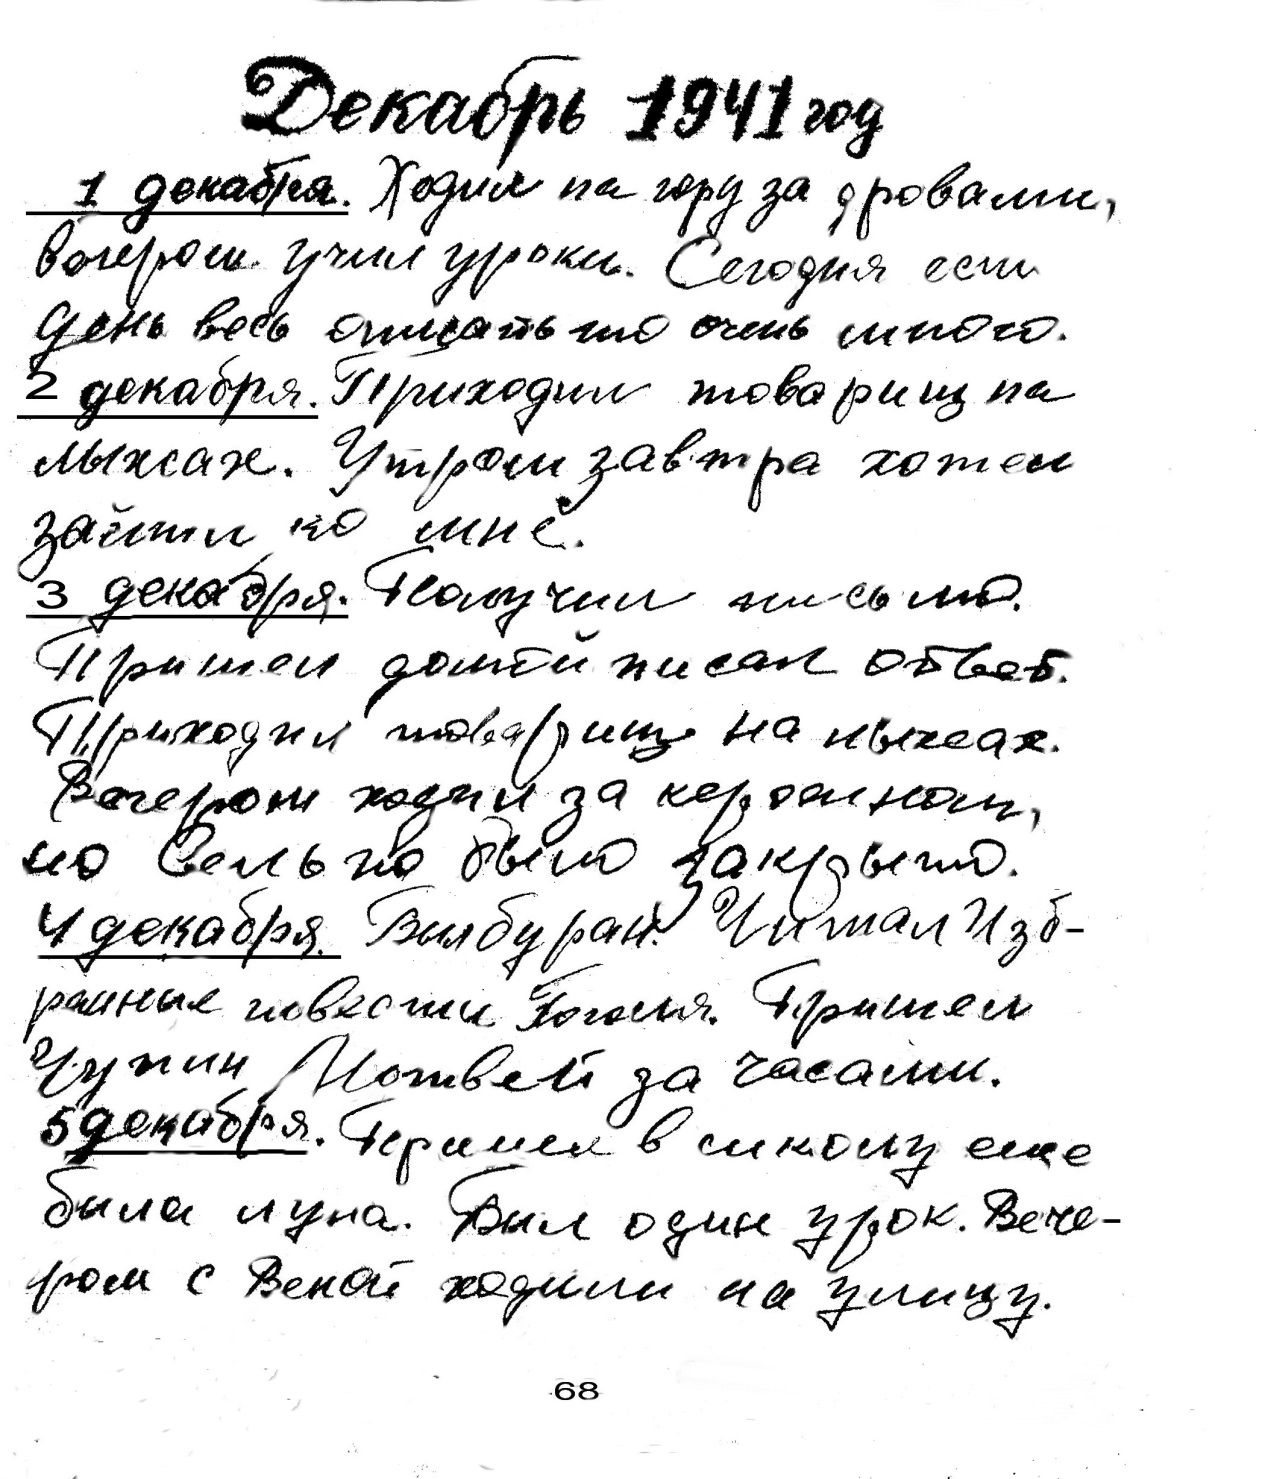 Декабрь 1941 год
1 декабря. Ходил на гору за дровами,
вечером учил уроки. Сегодня если
день весь описать то очень много.
2 декабря. Приходил товарищ на
лыжах. Утром завтра хотел
зайти ко мне.
3 декабря. Получил письмо.
Пришел домой писал ответ.
Приходил товарищ на лыжах.
Вечером ходил за керосином,
но Сельпо было закрыто.
4 декабря. Был буран. Читал Изб-
ранные повести Гоголя. Пришел
Чупин Мотвей за часами.
5 декабря. Пришел в школу еще
была луна. Был один урок. Вече-
ром с Веной ходили на улицу.
68